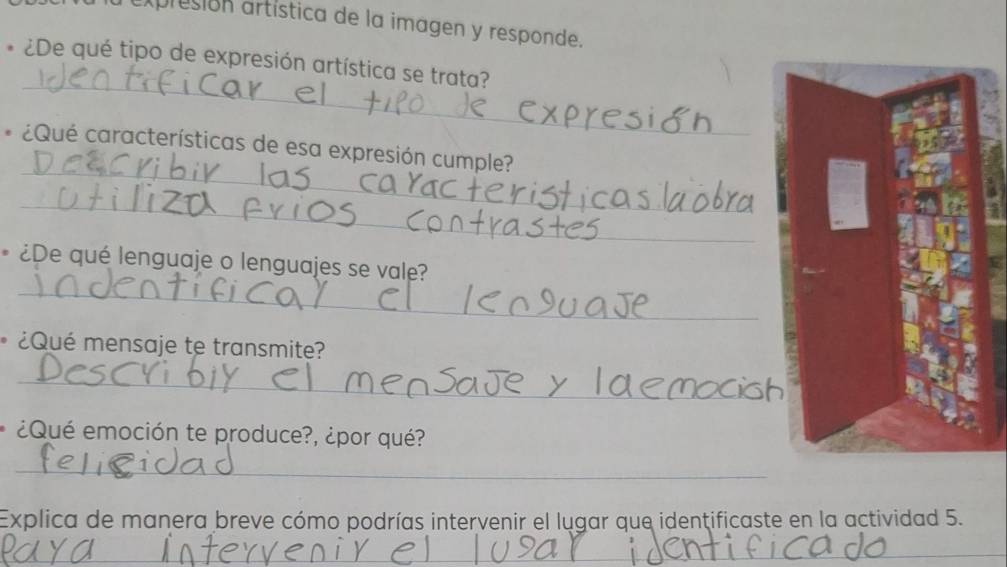 expresión artística de la imagen y responde.
• ¿De qué tipo de expresión artística se trata?
identificar el tipo de expresión
• ¿Qué características de esa expresión cumple?
Describir las caracteristicas la obra
utiliza frios contrastes
• ¿De qué lenguaje o lenguajes se vale?
indentificar el lenguaje
• ¿Qué mensaje te transmite?
Describir el mensaje y la emocion
• ¿Qué emoción te produce?, ¿por qué?
felicidad
Explica de manera breve cómo podrías intervenir el lugar que identificaste en la actividad 5.
Para intervenir el lugar identificado